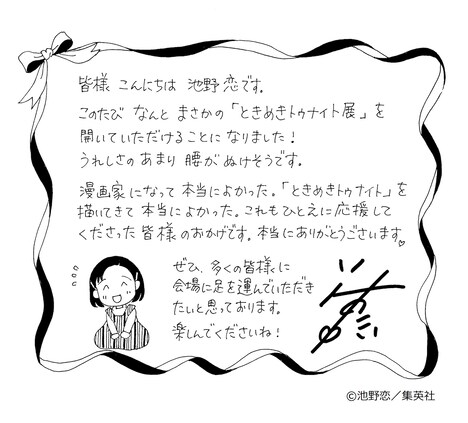 皆様 こんにちは 池野恋です。
このたび なんと まさかの「ときめきトゥナイト展」を
開いていただけることに なりました！
うれしさの あまり 腰が ぬけそうです。
漫画家になって 本当によかった。「ときめきトゥナイト」を
描いてきて 本当によかった。これもひとえに応援して
くださった 皆様のおかげです。本当にありがとうございます♡
ぜひ、多くの皆様に
会場に足を運んでいただき
たいと思っております。
楽しんでくださいね！
©池野恋／集英社